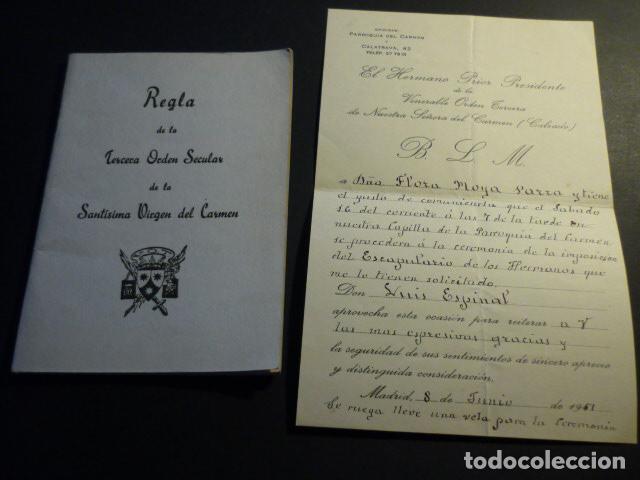 Regla
de la
Tercera Orden Secular
de la
Santísima Virgen del Carmen
PARROQUIA DEL CARMEN
CALATRAVA,
TELEF.
El Hermano Prior Presidente
de la
Venerable Orden Tercera
de Nuestra Señora del Carmen (Calzado)
B. L. M.
a Dña Flora Moya Parra y tiene
el gusto de comunicarla que el Sabado
16 del corriente á las 7 de la tarde en
nuestra Capilla de la Parroquia del Carmen
se procedera á la ceremonia de la imposicion
del Escapulario de los Hermanos que
me lo tienen solicitado.
Don Luis Espinal
aprovecha esta ocasión para reiterar a V
las mas expresivas gracias y
la seguridad de sus sentimientos de sincero aprecio
y distinguida consideración.
Madrid, 8 de Junio de 1951
Se ruega lleve una vela para la Ceremonia
todocoleccion
todocoleccion.net